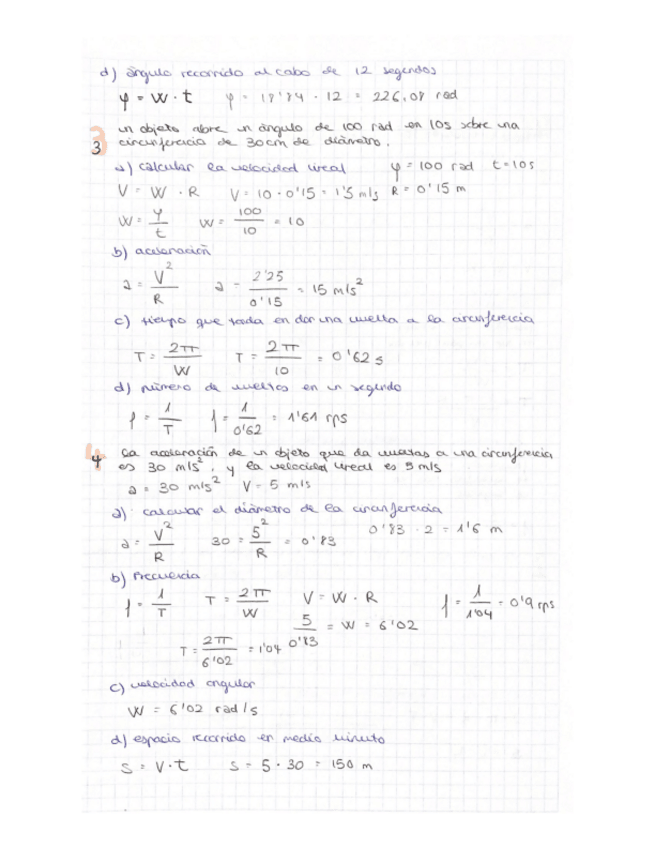 d) ángulo recorrido al cabo de 12 segundos
φ = W · t φ = 18'84 · 12 = 226,08 rad
3 un objeto abre un ángulo de 100 rad en 10s sobre una
circunferencia de 30cm de diámetro.
a) calcular la velocidad lineal φ = 100 rad t = 10s
V = W · R V = 10 · 0'15 = 1'5 m/s R = 0'15 m
W = φ/t W = 100/10 = 10
b) aceleración
a = V²/R a = 2'25/0'15 = 15 m/s²
c) tiempo que tarda en dar una vuelta a la circunferencia
T = 2π/W T = 2π/10 = 0'62 s
d) número de vueltas en un segundo
f = 1/T f = 1/0'62 = 1'61 rps
4 La aceleración de un objeto que da vueltas a una circunferencia
es 30 m/s², y la velocidad lineal es 5 m/s
a = 30 m/s² V = 5 m/s
a) calcular el diámetro de la circunferencia
a = V²/R 30 = 5²/R = 0'83 0'83 · 2 = 1'6 m
b) Frecuencia
f = 1/T T = 2π/W V = W · R f = 1/1'04 = 0'9 rps
5/0'83 = W = 6'02
T = 2π/6'02 = 1'04
c) velocidad angular
W = 6'02 rad/s
d) espacio recorrido en medio minuto
S = V · t S = 5 · 30 = 150 m